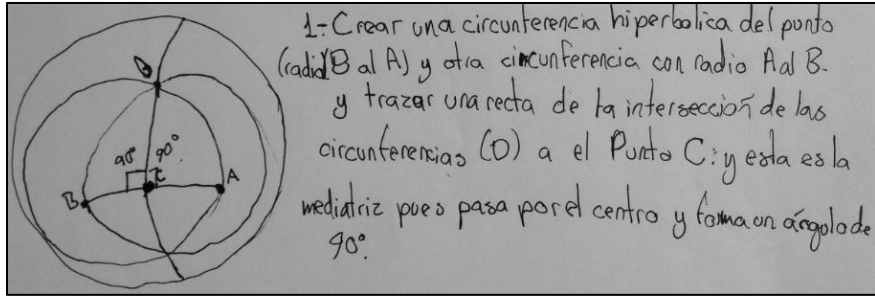 D
90°
90°
C
B
A
1-Crear una circunferencia hiperbolica del punto
(radio B al A) y otra circunferencia con radio A al B.
y trazar una recta de la intersección de las
circunferencias (D) a el Punto C: y esta es la
mediatriz pues pasa por el centro y forma un ángulo de
90°.